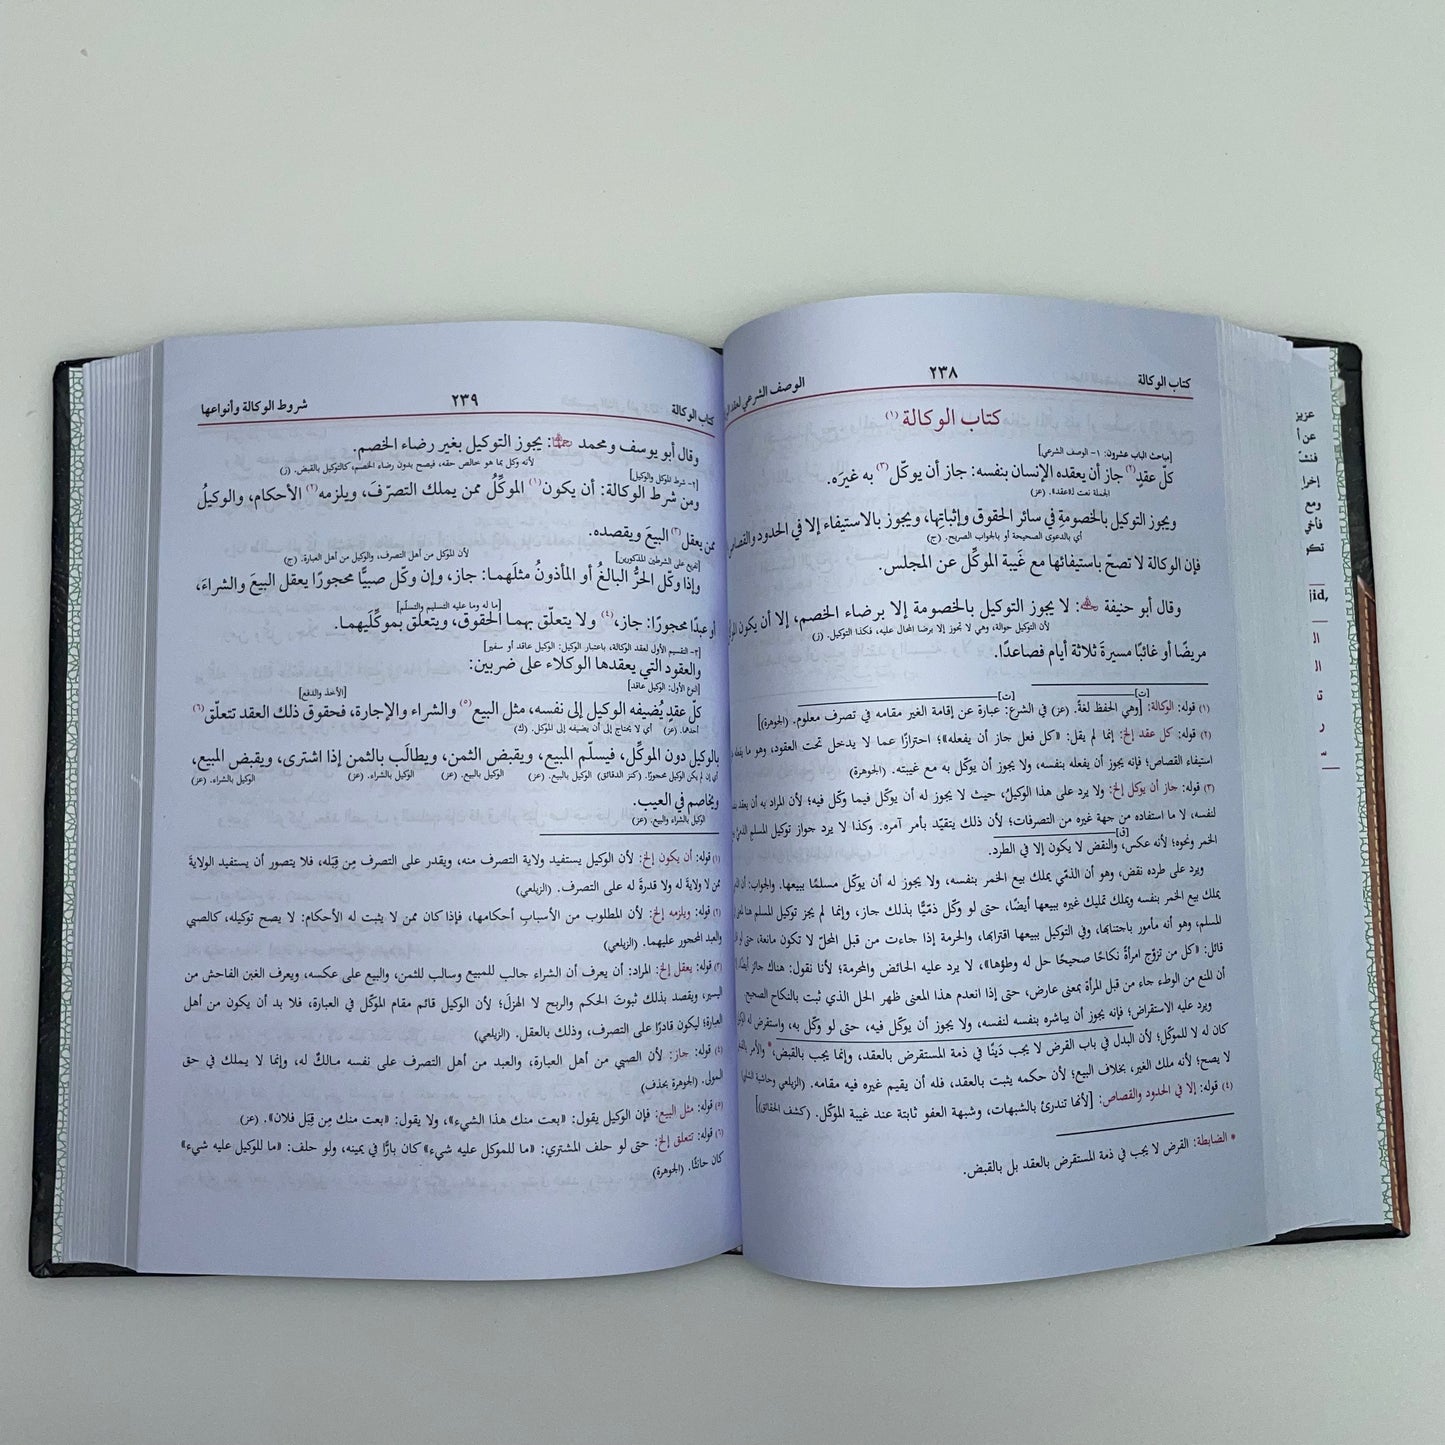 كتاب الوكالة
٢٣٨
الوصف الشرعي لعقد
كتاب الوكالة (١)
[مباحث الباب عشرون: ١- الوصف الشرعي]
كلّ عقدٍ(٢) جاز أن يعقده الإنسان بنفسه: جاز أن يوكّل(٣) به غيرَه.
الجملة نعت لـ«عقد». (عز)
ويجوز التوكيل بالخصومةِ في سائر الحقوق وإثباتِها، ويجوز بالاستيفاء إلا في الحدود والقصاص
أي بالدعوى الصحيحة أو بالجواب الصريح. (ج)
فإن الوكالة لا تصحّ باستيفائها مع غَيبة الموكِّل عن المجلس.
وقال أبو حنيفة: لا يجوز التوكيل بالخصومة إلا برضاء الخصم، إلا أن يكون
لأن التوكيل حوالة، وهي لا تجوز إلا برضا المحال عليه، فكذا التوكيل. (ز)
مريضًا أو غائبًا مسيرةَ ثلاثة أيام فصاعدًا.
[ت] [ت]
(١) قوله: الوكالة: [وهي الحفظ لغةً. (عز) في الشرع: عبارة عن إقامة الغير مقامه في تصرف معلوم. (الجوهرة)]
(٢) قوله: كل عقد إلخ: إنما لم يقل: «كل فعل جاز أن يفعله»؛ احترازًا عما لا يدخل تحت العقود، وهو ما يفعله
استيفاء القصاص؛ فإنه يجوز أن يفعله بنفسه، ولا يجوز أن يوكّل به مع غيبته. (الجوهرة)
(٣) قوله: جاز أن يوكل إلخ: ولا يرد على هذا الوكيلُ، حيث لا يجوز له أن يوكّل فيما وكّل فيه؛ لأن المراد به أن يعقد
لنفسه، لا ما استفاده من جهة غيره من التصرفات؛ لأن ذلك يتقيّد بأمر آمره. وكذا لا يرد جواز توكيل المسلم
الخمر ونحوه؛ لأنه عكس، والنقض لا يكون إلا في الطرد.
[ق]
ويرد على طرده نقض، وهو أن الذمّي يملك بيع الخمر بنفسه، ولا يجوز له أن يوكّل مسلمًا ببيعها. والجواب:
يملك بيع الخمر بنفسه ويملك تمليك غيره ببيعها أيضًا، حتى لو وكّل ذمّيًّا بذلك جاز، وإنما لم يجز توكيل المسلم هنا
المسلم، وهو أنه مأمور باجتنابها، وفي التوكيل ببيعها اقترابها، والحرمة إذا جاءت من قبل المحلّ لا تكون مانعة، حتى لو
قائل: «كل من تزوّج امرأةً نكاحًا صحيحًا حل له وطؤها»، لا يرد عليه الحائض والمحرمة؛ لأنا نقول: هناك جائز
أن المنع من الوطء جاء من قبل المرأة بمعنى عارض، حتى إذا انعدم هذا المعنى ظهر الحل الذي ثبت بالنكاح الصحيح
ويرد عليه الاستقراض؛ فإنه يجوز أن يباشره بنفسه لنفسه، ولا يجوز أن يوكّل فيه، حتى لو وكّل به، واستقرض له
كان له لا للموكّل؛ لأن البدل في باب القرض لا يجب دَينًا في ذمة المستقرض بالعقد، وإنما يجب بالقبض،* والأمر
لا يصح؛ لأنه ملك الغير، بخلاف البيع؛ لأن حكمه يثبت بالعقد، فله أن يقيم غيره فيه مقامه. (الزيلعي وحاشية
(٤) قوله: إلا في الحدود والقصاص: [لأنها تندرئ بالشبهات، وشبهة العفو ثابتة عند غيبة الموكّل. (كشف الحقائق)]
* الضابطة: القرض لا يجب في ذمة المستقرض بالعقد بل بالقبض.
كتاب الوكالة
٢٣٩
شروط الوكالة وأنواعها
وقال أبو يوسف ومحمد: يجوز التوكيل بغير رضاء الخصم.
لأنه وكل بما هو خالص حقه، فيصح بدون رضاء الخصم، كالتوكيل بالقبض. (ز)
[٢- شرط الموكل والوكيل]
ومن شرط الوكالة: أن يكون(١) الموكِّلُ ممن يملك التصرّفَ، ويلزمه(٢) الأحكام، والوكيلُ
ممن يعقل(٣) البيعَ ويقصده.
لأن الموكل من أهل التصرف، والوكيل من أهل العبارة. (ج)
[تفريع على الشرطين المذكورين]
وإذا وكّل الحرُّ البالغُ أو المأذونُ مثلَهما: جاز، وإن وكّل صبيًّا محجورًا يعقل البيعَ والشراءَ،
[ما له وما عليه التسليم والتسلّم]
أو عبدًا محجورًا: جاز،(٤) ولا يتعلّق بهما الحقوق، ويتعلّق بموكِّلَيهما.
[٣- التقسيم الأول لعقد الوكالة، باعتبار الوكيل: الوكيل عاقد أو سفير]
والعقود التي يعقدها الوكلاء على ضربين:
[النوع الأول: الوكيل عاقد]
[الأخذ والدفع]
كلّ عقدٍ يُضيفه الوكيل إلى نفسه، مثل البيع(٥) والشراء والإجارة، فحقوق ذلك العقد تتعلّق(٦)
أحدهما. (عز) أي لا يحتاج إلى أن يضيفه إلى الموكل. (ك)
بالوكيل دون الموكِّل، فيسلّم المبيع، ويقبض الثمن، ويطالَب بالثمن إذا اشترى، ويقبض المبيع،
أي إن لم يكن الوكيل محجورًا. (كنز الدقائق) الوكيل بالبيع. (عز) الوكيل بالبيع. (عز) الوكيل بالشراء. (عز) الوكيل بالشراء. (عز)
ويخاصم في العيب.
الوكيل بالشراء والبيع. (عز)
(١) قوله: أن يكون إلخ: لأن الوكيل يستفيد ولاية التصرف منه، ويقدر على التصرف مِن قِبَله، فلا يتصور أن يستفيد الولايةَ
ممن لا ولايةَ له ولا قدرةَ له على التصرف. (الزيلعي)
(٢) قوله: ويلزمه إلخ: لأن المطلوب من الأسباب أحكامها، فإذا كان ممن لا يثبت له الأحكام: لا يصح توكيله، كالصبي
والعبد المحجور عليهما. (الزيلعي)
(٣) قوله: يعقل إلخ: المراد: أن يعرف أن الشراء جالب للمبيع وسالب للثمن، والبيع على عكسه، ويعرف الغبن الفاحش من
اليسير، ويقصد بذلك ثبوتَ الحكم والربح لا الهزلَ؛ لأن الوكيل قائم مقام الموكّل في العبارة، فلا بد أن يكون من أهل
العبارة؛ ليكون قادرًا على التصرف، وذلك بالعقل. (الزيلعي)
(٤) قوله: جاز: لأن الصبي من أهل العبارة، والعبد من أهل التصرف على نفسه مالكٌ له، وإنما لا يملك في حق
المولى. (الجوهرة بحذف)
(٥) قوله: مثل البيع: فإن الوكيل يقول: «بعت منك هذا الشيء»، ولا يقول: «بعت منك مِن قِبَل فلان». (عز)
(٦) قوله: تتعلق إلخ: حتى لو حلف المشتري: «ما للموكل عليه شيء» كان بارًّا في يمينه، ولو حلف: «ما للوكيل عليه شيء»
كان حانثًا. (الجوهرة)
عزيز
عن أ
إخرا
ومع
فأخي
تكو
jid,